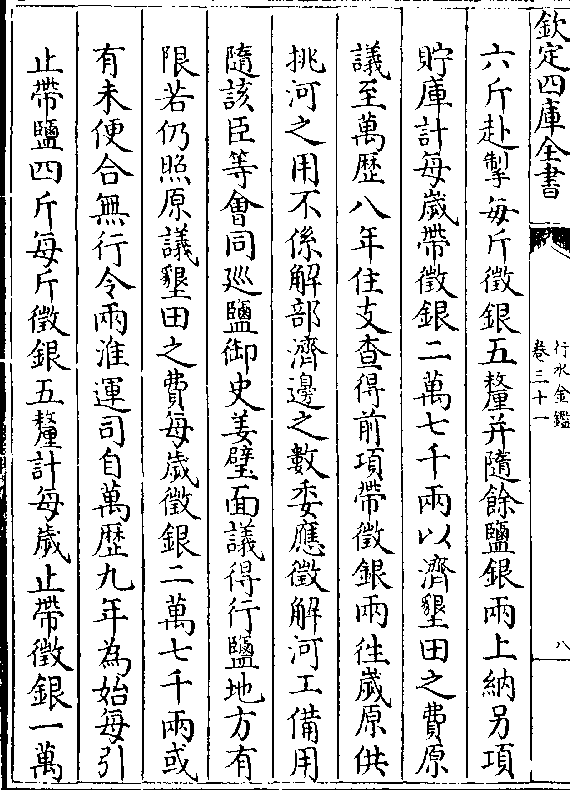 欽定四庫全書
行水金鑑
卷三十一
八
六斤赴掣每斤徵銀五釐并隨餘鹽銀兩上納另項
貯庫計每歲帶徵銀二萬七千兩以濟墾田之費原
議至萬歷八年住支查得前項帶徵銀兩往歲原供
挑河之用不係解部濟邊之數委應徵解河工備用
隨該臣等會同廵鹽御史姜璧面議得行鹽地方有
限若仍照原議墾田之費每歲徵銀二萬七千兩或
有未便合無行令兩淮運司自萬歷九年為始每引
止帶鹽四斤每斤徵銀五釐計每歲止帶徵銀一萬